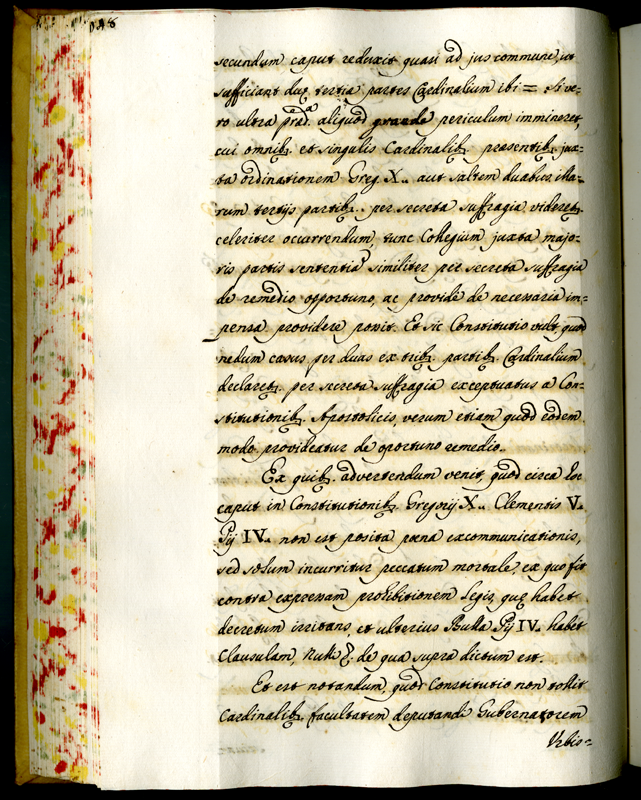 secundum caput reduxit quasi ad jus commune, ut
sufficiant duę tertię partes Cardinalium ibi = Si ve=
ro ultra prad.a aliquod grande periculum immineret,
cui omnib. et singulis Cardinalib. presentib. jux=
ta ordinationem Greg. X.. aut saltem duabus illa=
rum tertijs partib.. per secreta suffragia videret.
celeriter ocurrendum, tunc Collegium juxta majo=
ris partis sententiã similiter per secreta suffragia
de remedio opportuno, ac providè de necessaria im=
pensa providere possit. Et sic Constitutio vult, quod
nedum casus per duas ex trib. partib. Cardinalium
declaret. per secreta suffragia exceptuatus a Con=
stitutionib. Apostolicis, verum etiam quod eodem
modo provideatur de oportuno remedio.
Ex quib. advertendum venit, quod circa hoc
caput in Constitutionib. Gregorij X.. Clementis V.
Pij IV. non est posita pœna excommunicationis,
sed solum incurritur peccatum mortale, ex quo fit
contra expressam prohibitionem Legis, quę habet
decretum irritans, et ulterius Bulla Pij IV. habet
Clausulam, Nulli &. de qua supra dictum est.
Et est notandum, quod Constitutio non tollit
Cardinalib. facultatem deputandi Gubernatorem
Urbis=